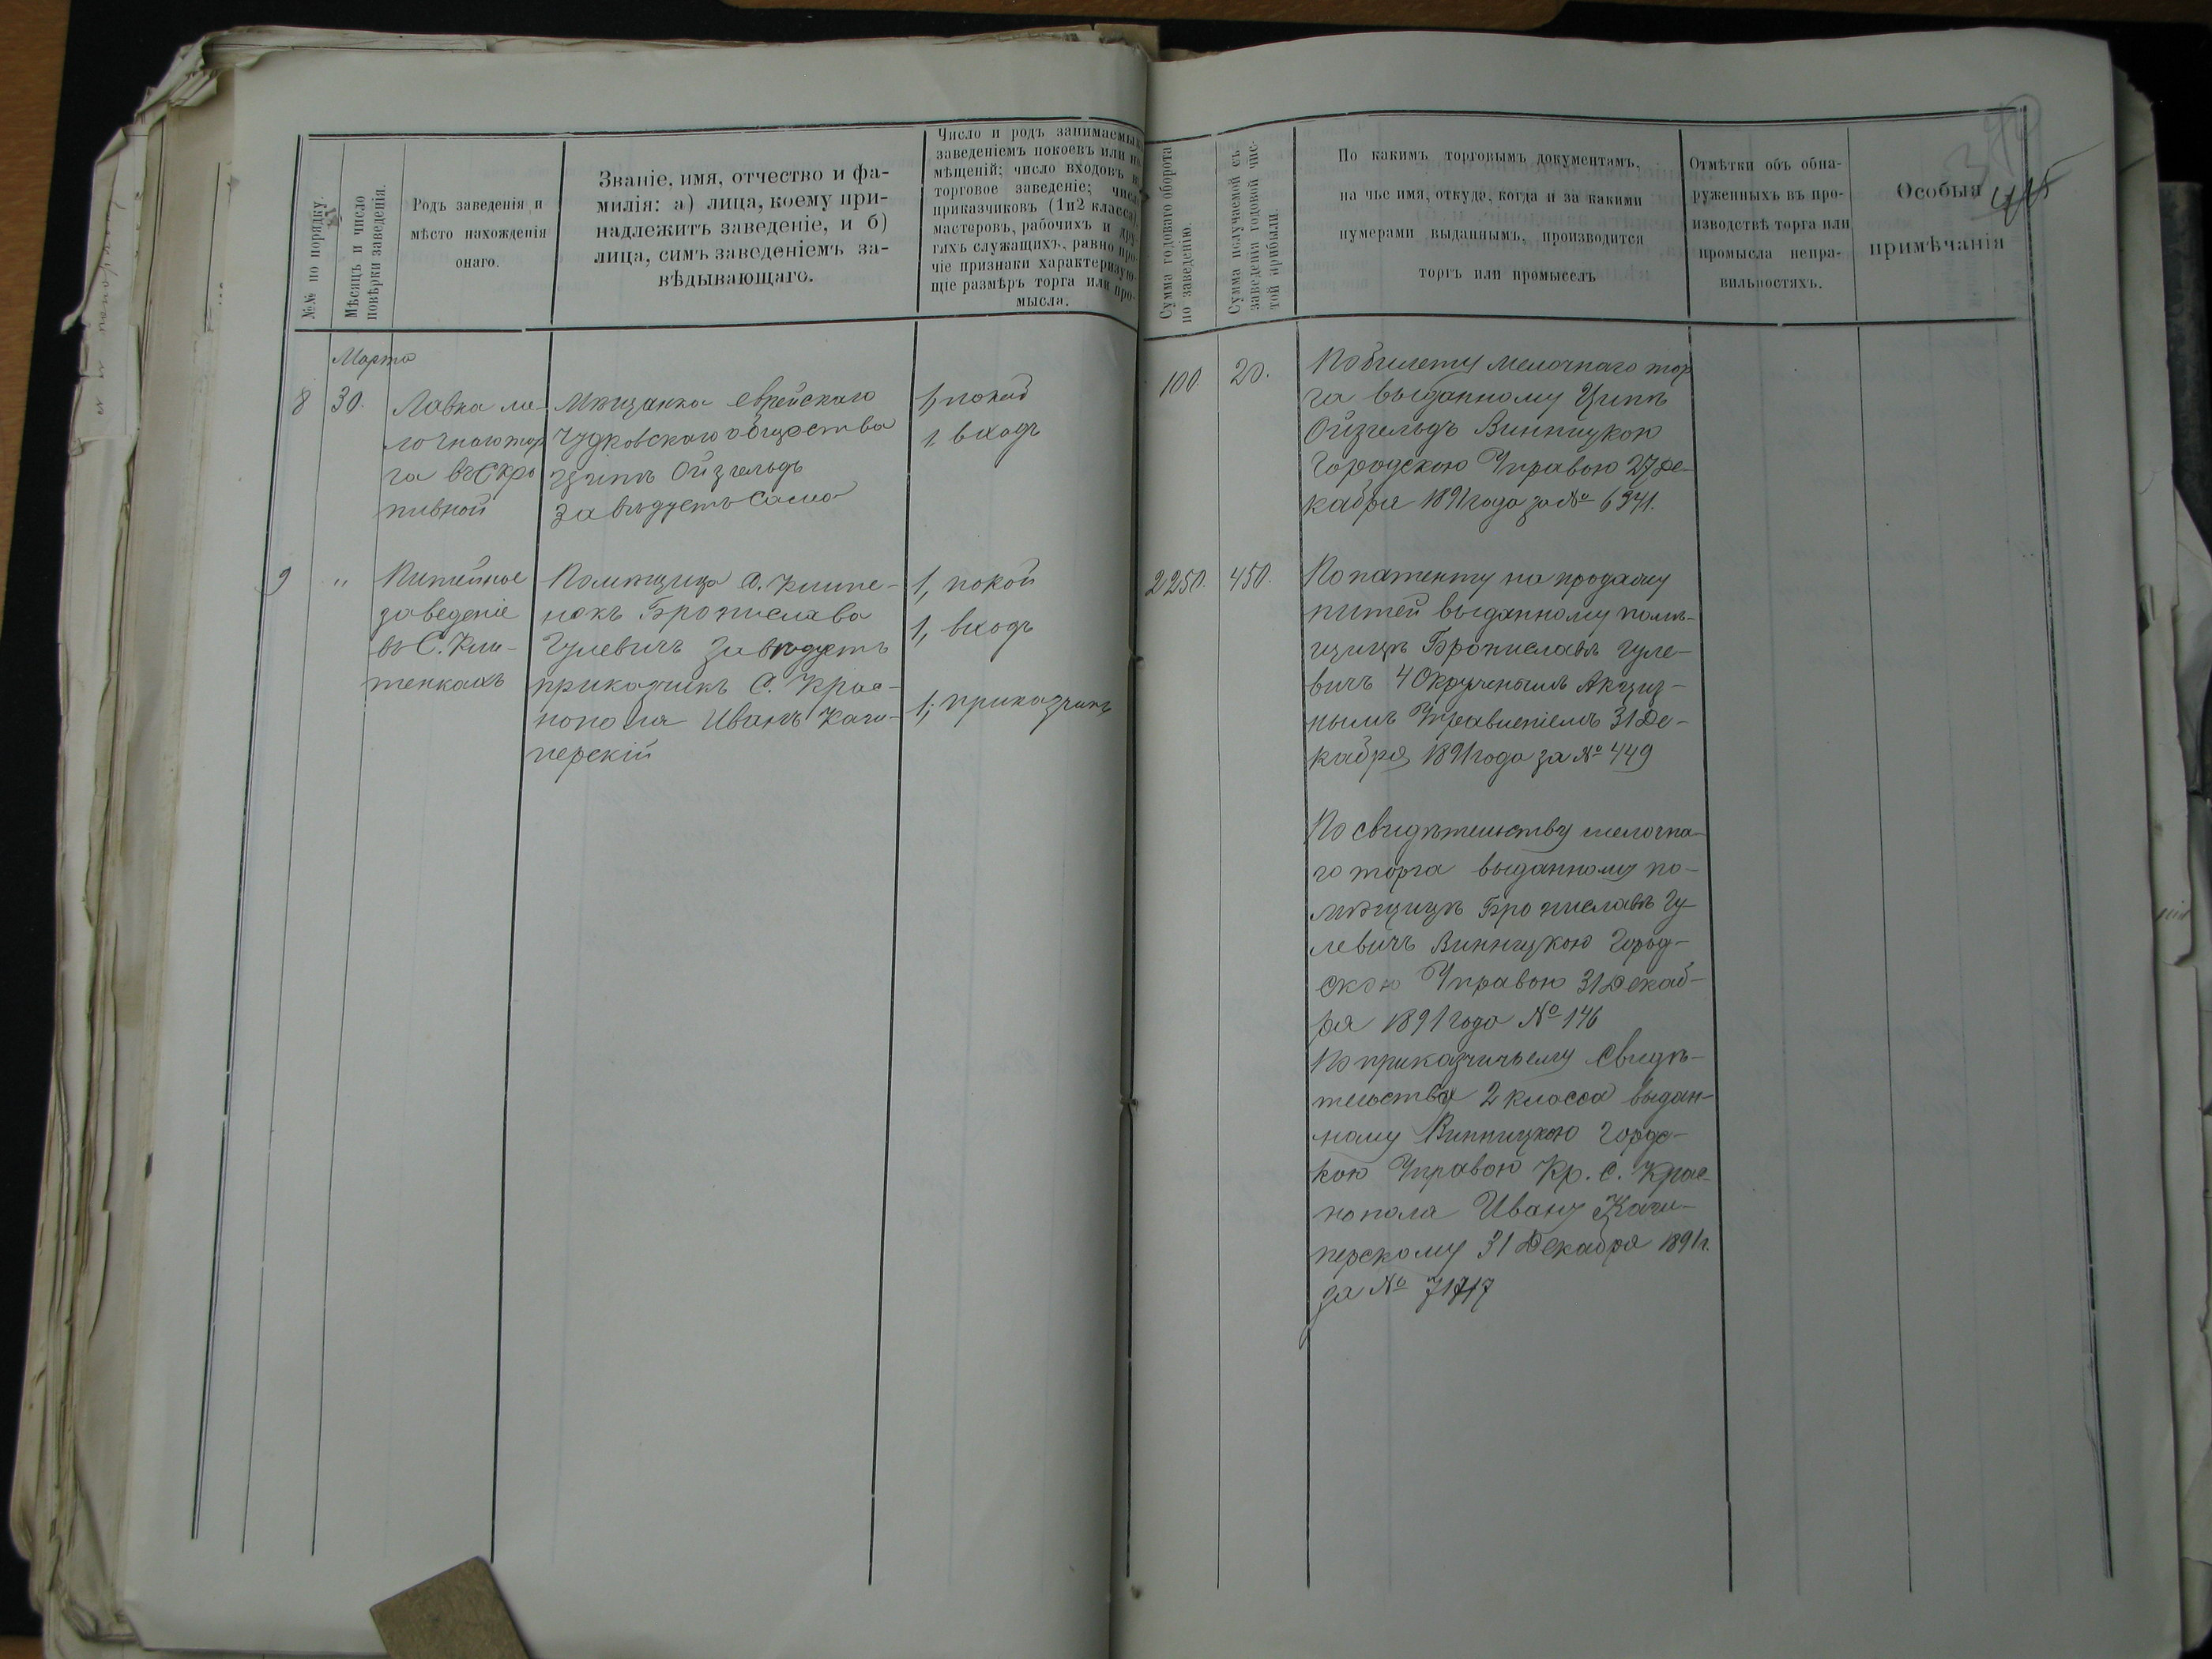 №№ по порядку.
Мѣсяцъ и число
повѣрки заведенія.
Родъ заведенія и
мѣсто нахожденія
онаго.
Званіе, имя, отчество и фа-
милія: а) лица, коему при-
надлежитъ заведеніе, и б)
лица, симъ заведеніемъ за-
вѣдывающаго.
Число и родъ занимаемыхъ
заведеніемъ покоевъ или по-
мѣщеній; число входовъ въ
торговое заведеніе; число
приказчиковъ (1 и 2 класса),
мастеровъ, рабочихъ и дру-
гихъ служащихъ, равно про-
чіе признаки характеризую-
щіе размѣръ торга или про-
мысла.
Сумма годоваго оборота
по заведенію.
Сумма получаемой съ
заведенія годовой чис-
той прибыли.
По какимъ торговымъ документамъ,
на чье имя, откуда, когда и за какими
нумерами выданнымъ, производится
торгъ или промыселъ
Отмѣтки объ обна-
руженныхъ въ про-
изводствѣ торга или
промысла непра-
вильностяхъ.
Особыя
примѣчанія
Марта
8
30.
Лавка ме-
лочнаго тор
га въ Скро
пивной
Мѣщанка Еврейскаго
Чудковскаго общества
Ципа Ойзгельдъ
Завѣдуетъ Сама
1, покой
1 входъ
100
20.
По билету мелочнаго тор
га выданному Ципѣ
Ойзгельдъ Винницкою
Городскою Управою 27 Де-
кабря 1891 года за № 6341.
9
"
Питейное
заведеніе
въ С. Кли-
тенкахъ
Помѣщица С. Клите-
нокъ Бронислава
Гулевичъ Завѣдуетъ
прикащикъ С. Крас-
нопола Иванъ Качи-
перскій
1, покой
1, входъ
1; приказчикъ
2250.
450.
По патенту на продажу
питей выданному помѣ-
щицѣ Брониславѣ Гуле-
вичъ 4 Окружнымъ Акциз-
нымъ Управленіемъ 31 Де-
кабря 1891 года за № 449
По Свидѣтельству мелочна-
го торга выданному по-
мѣщицѣ Брониславѣ Гу-
левичъ Винницкою Город-
скою Управою 31 Декаб-
ря 1891 года № 146
По приказчичьему Свидѣ-
тельству 2 класса выдан-
ному Винницкою Городс-
кою Управою Кр. С. Крас
нопола Ивану Качи-
перскому 31 Декабря 1891 г.
за №